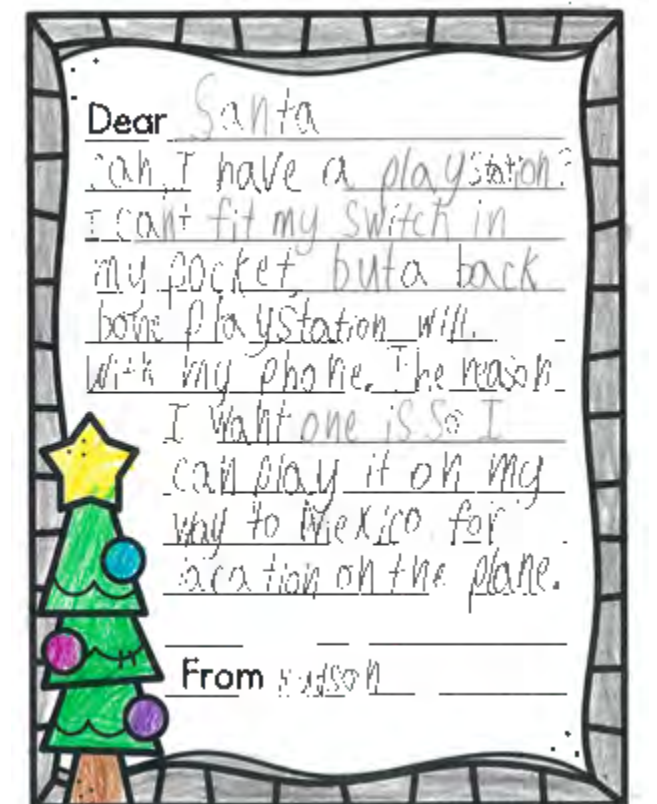 Dear Santa
can I have a playstation?
I cant fit my switch in
my pocket, but a back
bone playstation will.
With my phone. The reason
I want one is so I
can play it on my
way to Mexico for
vacation on the plane.
From